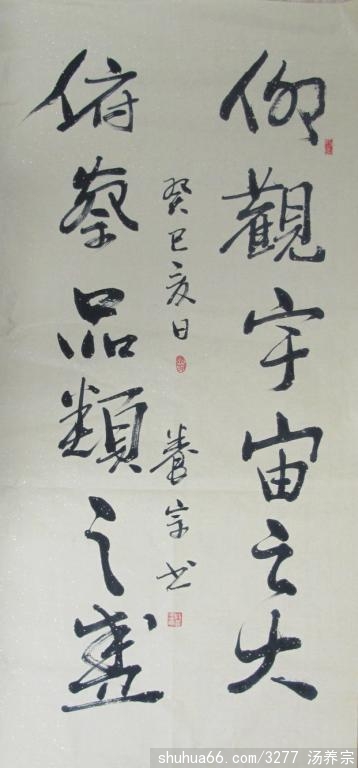 仰觀宇宙之大
俯察品類之盛
癸巳夏日
養宗书
shuhua66.com/3277 汤养宗